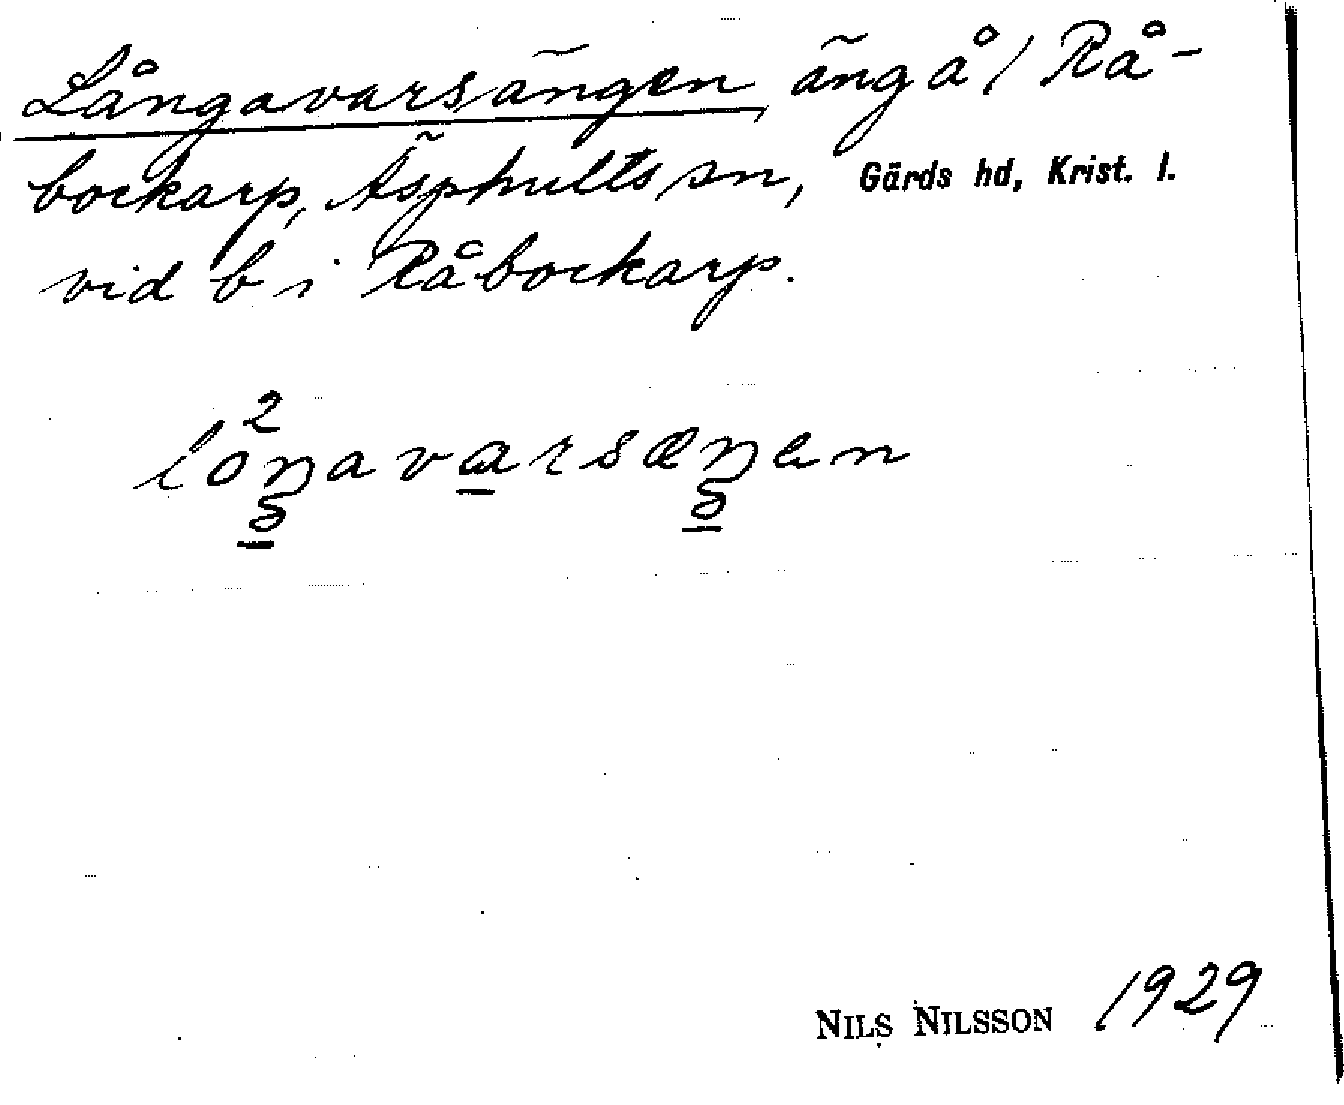 Långavarsängen, äng å/ Rå-
bockarp, Äsphults sn, Gärds hd, Krist. l.
vid b i Råbockarp.
2
loŋavarsæŋen
NILS NILSSON 1929